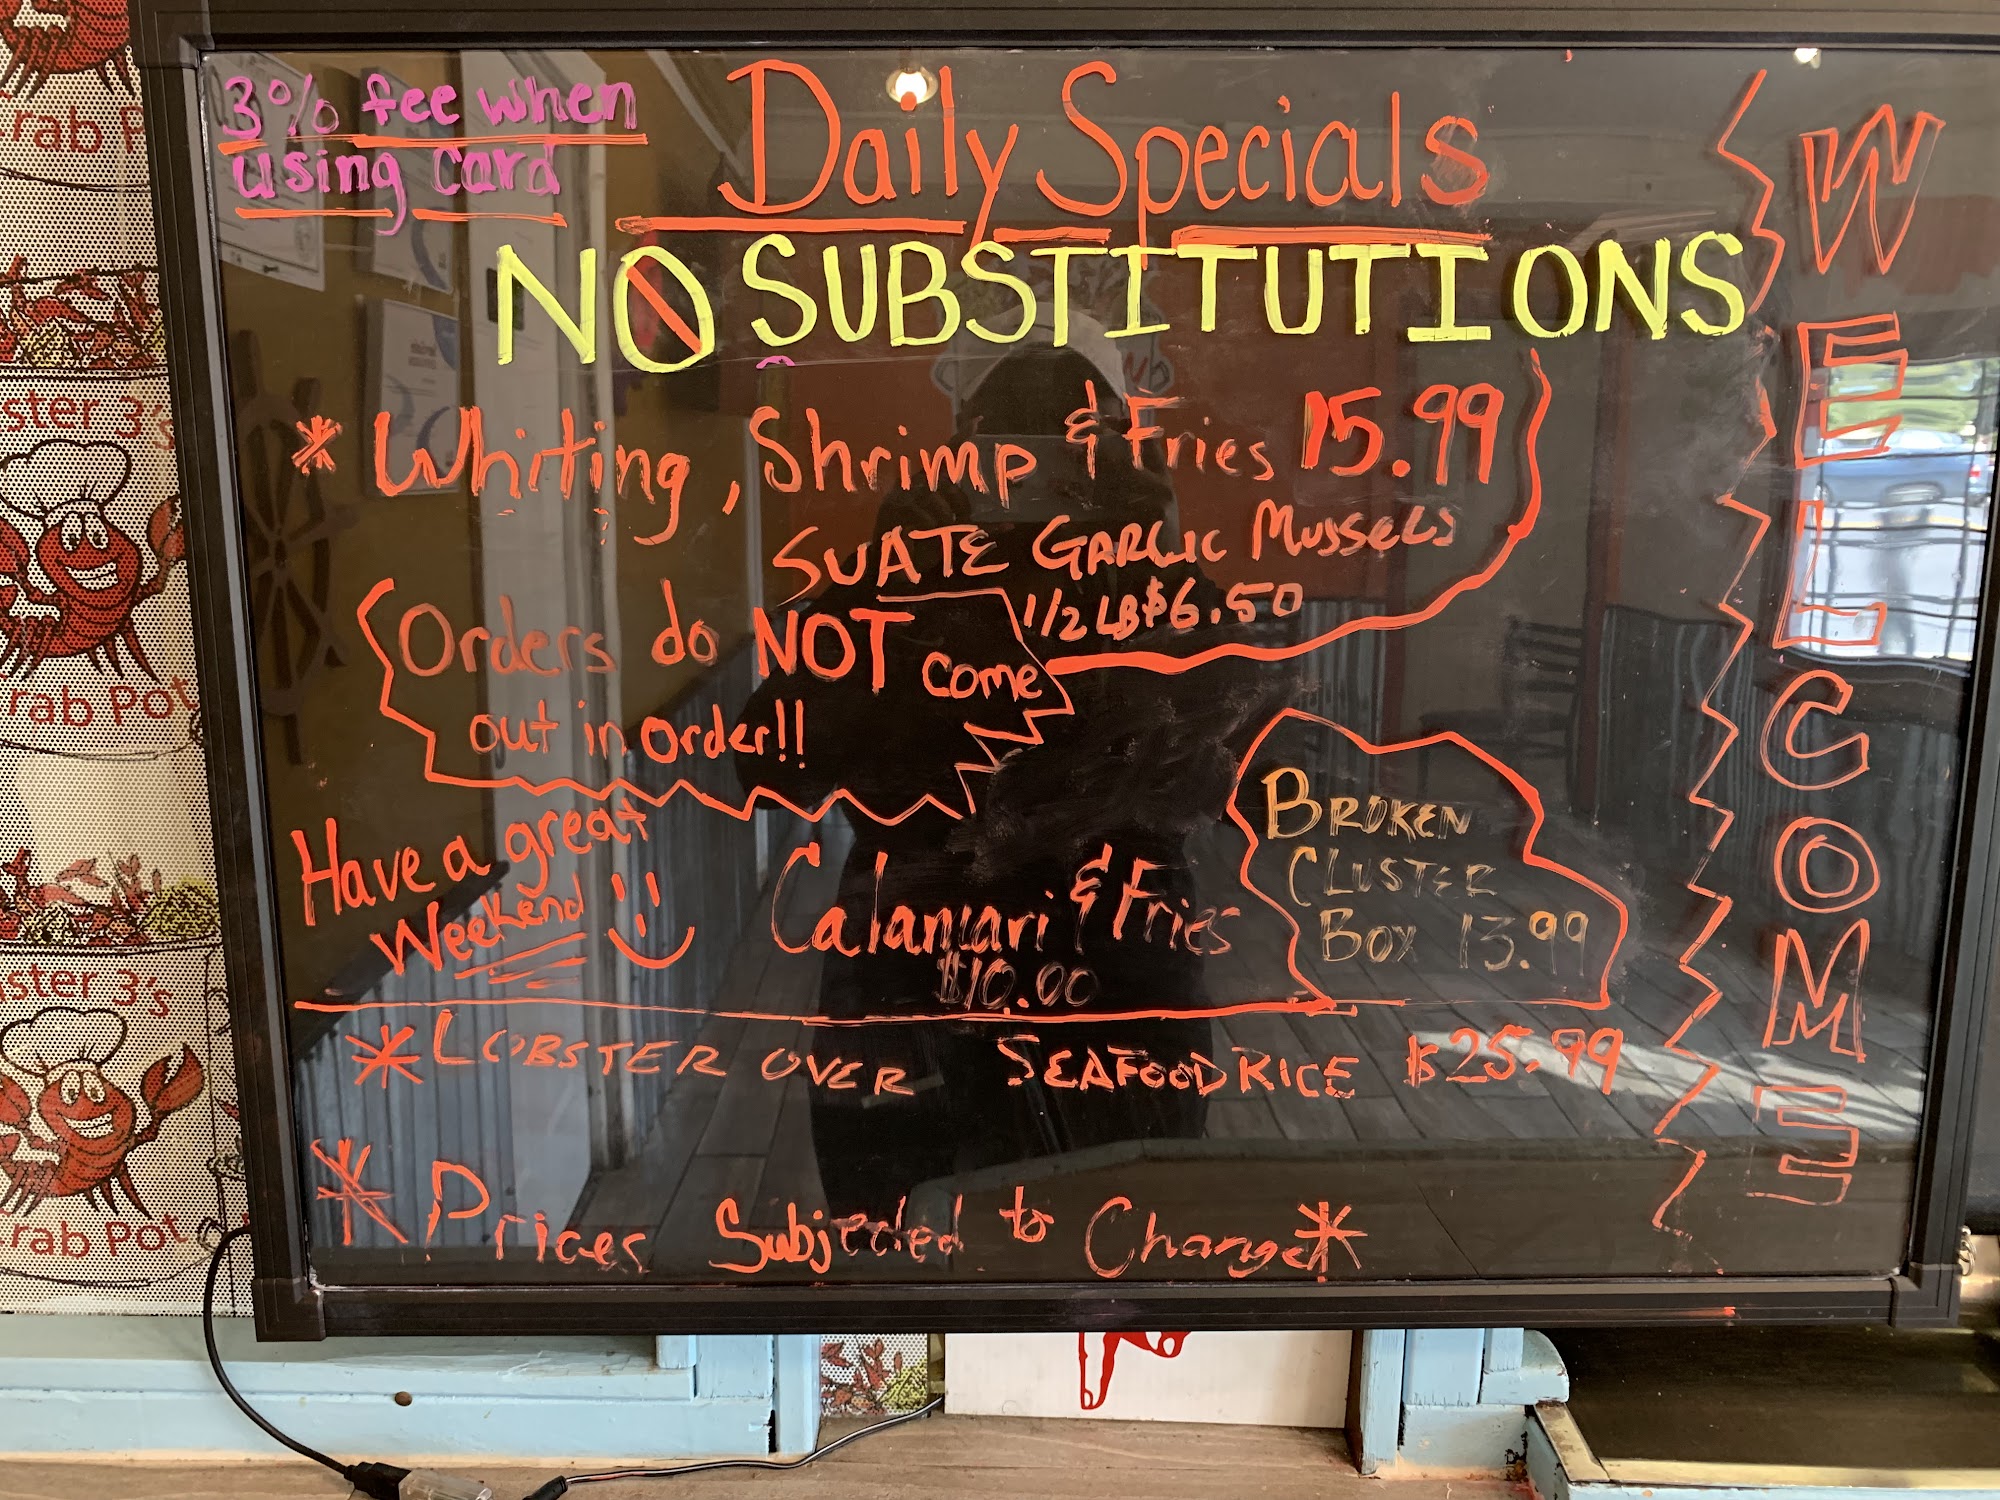 3% fee when
using card
Daily Specials
NO SUBSTITUTIONS
* Whiting, Shrimp & Fries 15.99
SUATE GARLIC MUSSELS
1/2 LB $6.50
Orders do NOT come
out in order!!
Have a great
Weekend
Calamari & Fries
$10.00
BROKEN
CLUSTER
BOX 13.99
* LOBSTER OVER SEAFOOD RICE $25.99
* Prices Subjected to Change *
WELCOME
rab P
ster 3's
rab Pot
ster 3's
rab Pot